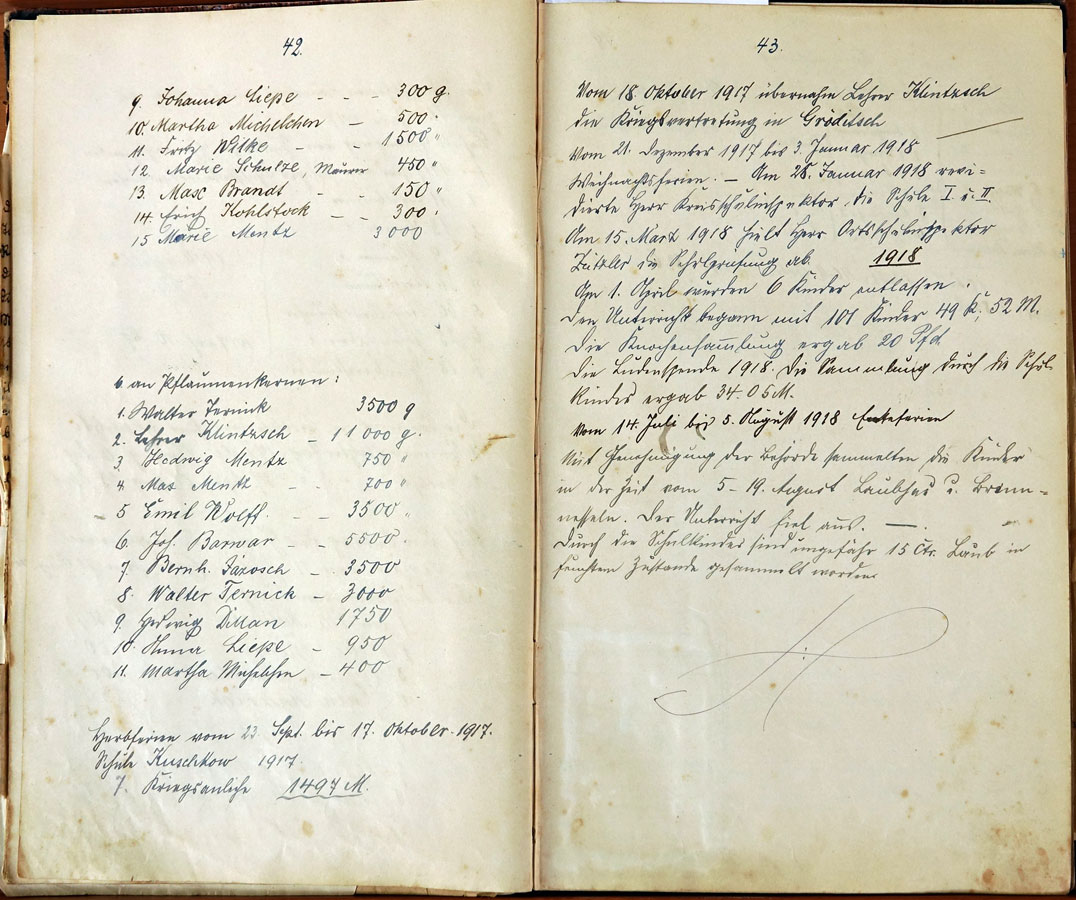 42.
9. Johanna Liepe - - 300 g.
10. Martha Michelchen - 500 "
11. Fritz Wilke - - 1500 "
12 Marie Schulze, Maurer 450 "
13. Max Brandt - 150 "
14. Erich Kohlstock - - 300 "
15 Marie Mentz 3000
b. an Pflaumenkernen:
1. Walter Jernick 3500 g
2. Lehrer Klintzsch - 11000 g.
3. Hedwig Mentz 750 "
4. Max Mentz 700 "
5 Emil Wolff. - - 3500 "
6. Joh. Barwar - - 5500.
7. Bernh. Jaxosch - 3500
8. Walter Jernick - 3000
9. Hedwig Dillan 1750
10. Anna Liepe - 950
11. Martha Michelchen - 400
Herbstferien vom 23 Sept. bis 17. Oktober 1917.
Schule Kuschkow 1917.
7. Kriegsanleihe 1497 M.
43.
Vom 18. Oktober 1917 übernahm Lehrer Klintzsch
die Kriegsvertretung in Gröditsch
Vom 21. Dezember 1917 bis 3. Januar 1918
Weihnachtsferien. - Am 28. Januar 1918 revi-
dierte Herr Kreisschulinspektor die Schule I u. II.
Am 15. März 1918 hielt Herr Ortsschulinspektor
die Schulprüfung ab. 1918
Am 1. April wurden 6 Kinder entlassen.
Der Unterricht begann mit 101 Kinder 49 K, 52 M.
Die Knochensammlung ergab 20 Pfd
Die Ludenspende 1918. Die Sammlung durch die Schul
kinder ergab 34.05 M.
Vom 14. Juli bis 5. August 1918 Ernteferien
Mit Genehmigung der Behörde sammelten die Kinder
in der Zeit vom 5-19. August Laubheu u. Brenn-
nesseln. Der Unterricht fiel aus. -
Durch die Schulkinder sind ungefähr 15 Ctr. Laub in
feuchtem Zustande gesammelt worden.